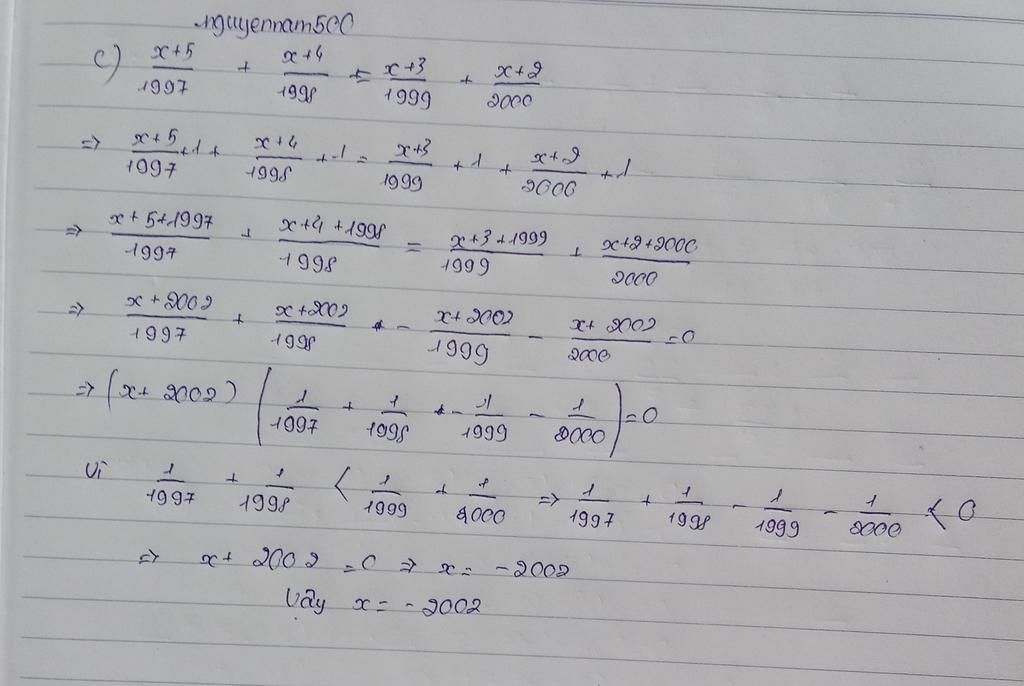 nguyennam500
c) x+5/1997 + x+4/1998 = x+3/1999 + x+2/2000
=> x+5/1997 +1 + x+4/1998 +1 = x+3/1999 +1 + x+2/2000 +1
=> x+5+1997/1997 + x+4+1998/1998 = x+3+1999/1999 + x+2+2000/2000
=> x+2002/1997 + x+2002/1998 - x+2002/1999 - x+2002/2000 =0
=> (x+ 2002) (1/1997 + 1/1998 - 1/1999 - 1/2000) =0
Vì 1/1997 + 1/1998 < 1/1999 + 1/2000 => 1/1997 + 1/1998 - 1/1999 - 1/2000 < 0
=> x+ 2002 =0 => x= -2002
Vậy x= -2002